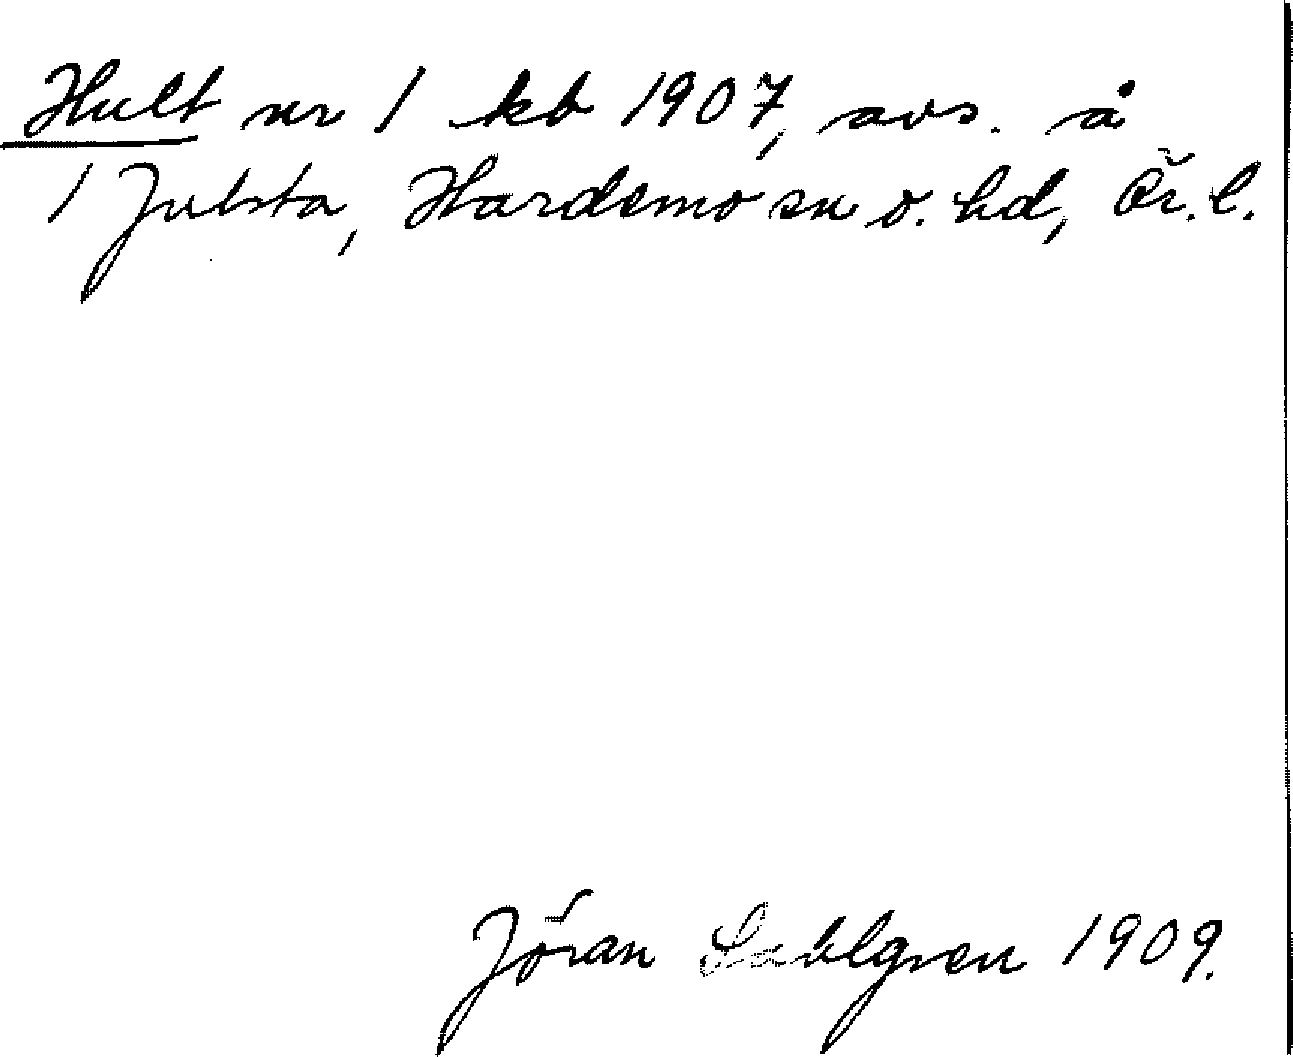 Hult nr 1 kb 1907, avs. å
1 Julsta, Hardemo sn o. hd, Ör. l.
Jöran Sahlgren 1909.